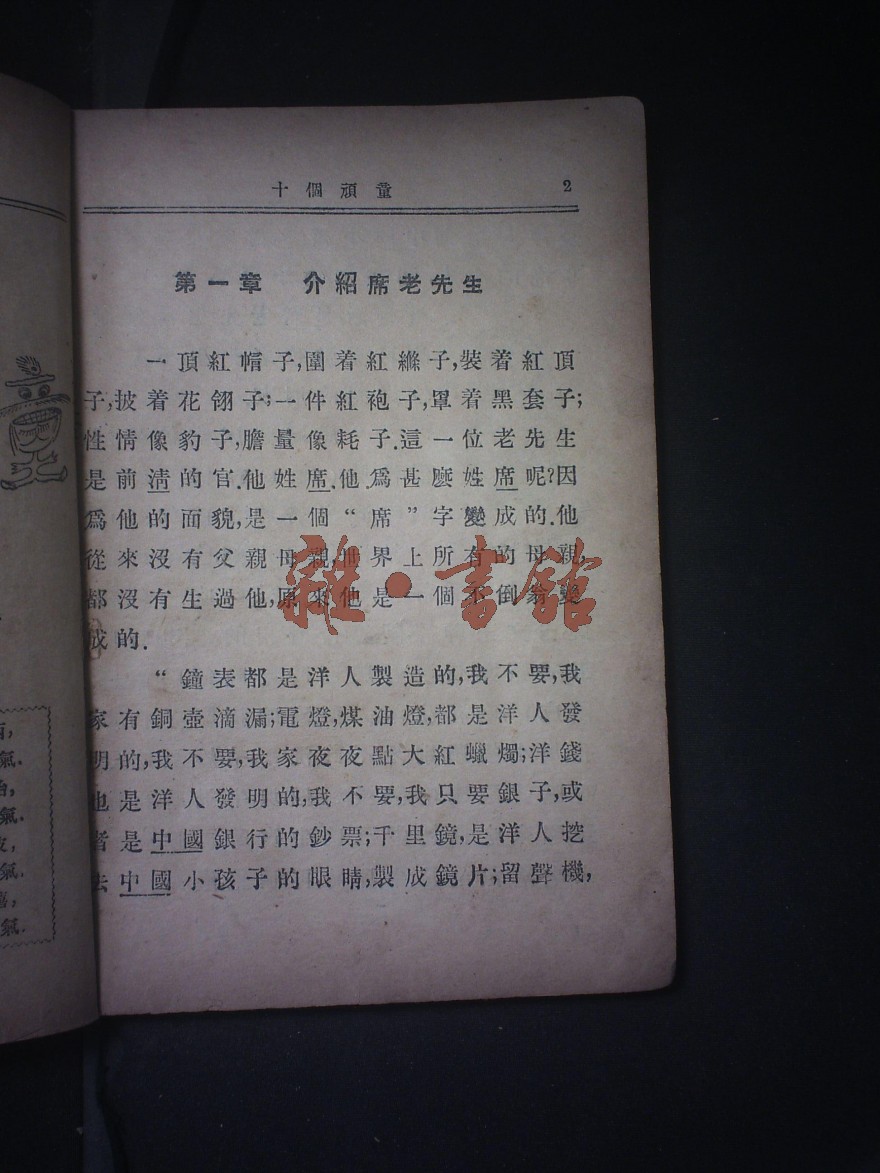 十個頑童 2
第一章 介紹席老先生
一頂紅帽子,圍着紅縧子,裝着紅頂
子,披着花翎子;一件紅袍子,罩着黑套子;
性情像豹子,膽量像耗子.這一位老先生
是前淸的官.他姓席.他爲甚麽姓席呢?因
爲他的面貌,是一個“席”字變成的.他
從來沒有父親母親,世界上所有的母親,
都沒有生過他,原來他是一個不倒翁變
成的.
“鐘表都是洋人製造的,我不要,我
家有銅壺滴漏;電燈,煤油燈,都是洋人發
明的,我不要,我家夜夜點大紅蠟燭;洋錢
也是洋人發明的,我不要,我只要銀子,或
者是中國銀行的鈔票;千里鏡,是洋人挖
去中國小孩子的眼睛,製成鏡片;留聲機,
雜·書館
氣.
氣.
氣.
氣.